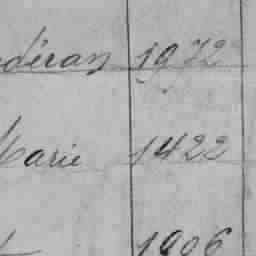 déran 1972
Marie 1422
1906